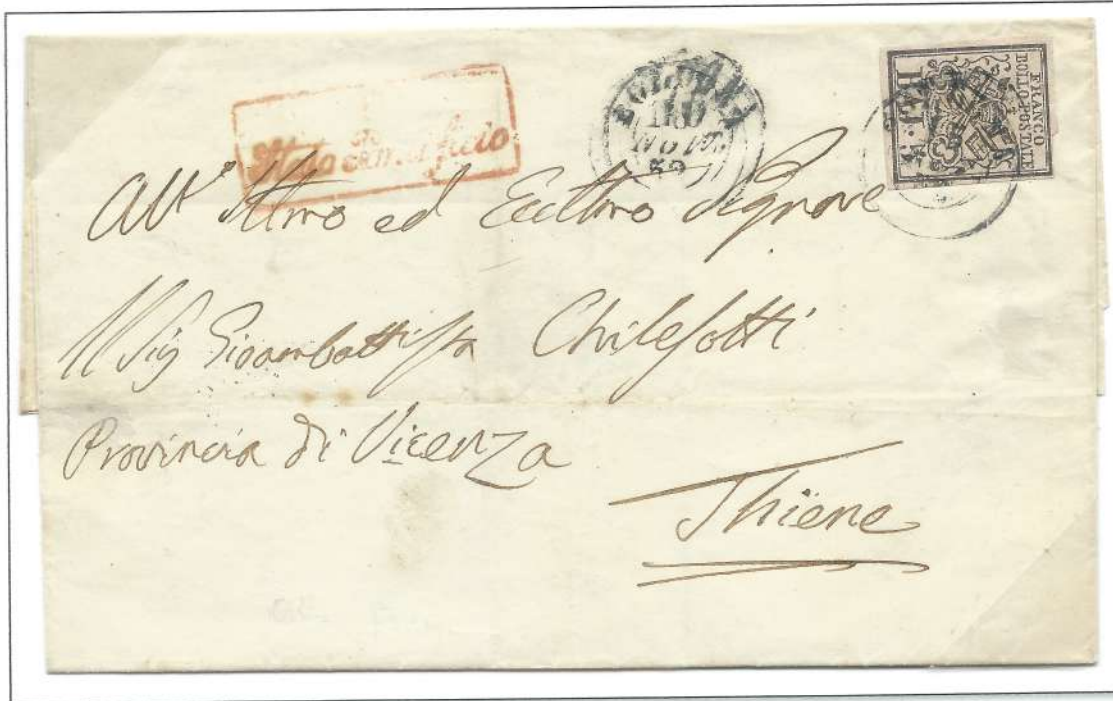 Stato Pontificio
BOLOGNA
10
NOV
52
FRANCO
BOLLO POSTALE
BAJ:
All' Illmo ed Eccllmo Signore
Il Sig Gioambattista Chilesotti
Provincia di Vicenza
Thiene